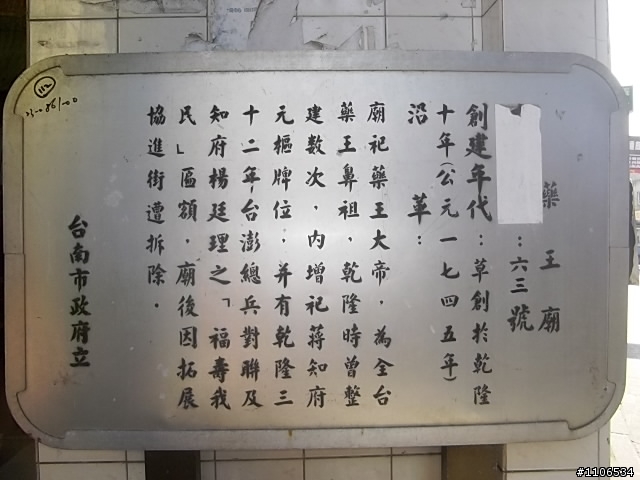 藥王廟
：六三號
創建年代：草創於乾隆
十年(公元一七四五年)
沿革：
廟祀藥王大帝，為全台
藥王鼻祖，乾隆時曾整
建數次，內增祀蔣知府
元樞牌位，并有乾隆三
十二年台澎總兵對聯及
知府楊廷理之「福壽我
民」區額，廟後因拓展
協進街遭拆除。
台南市政府立
112
#1106534